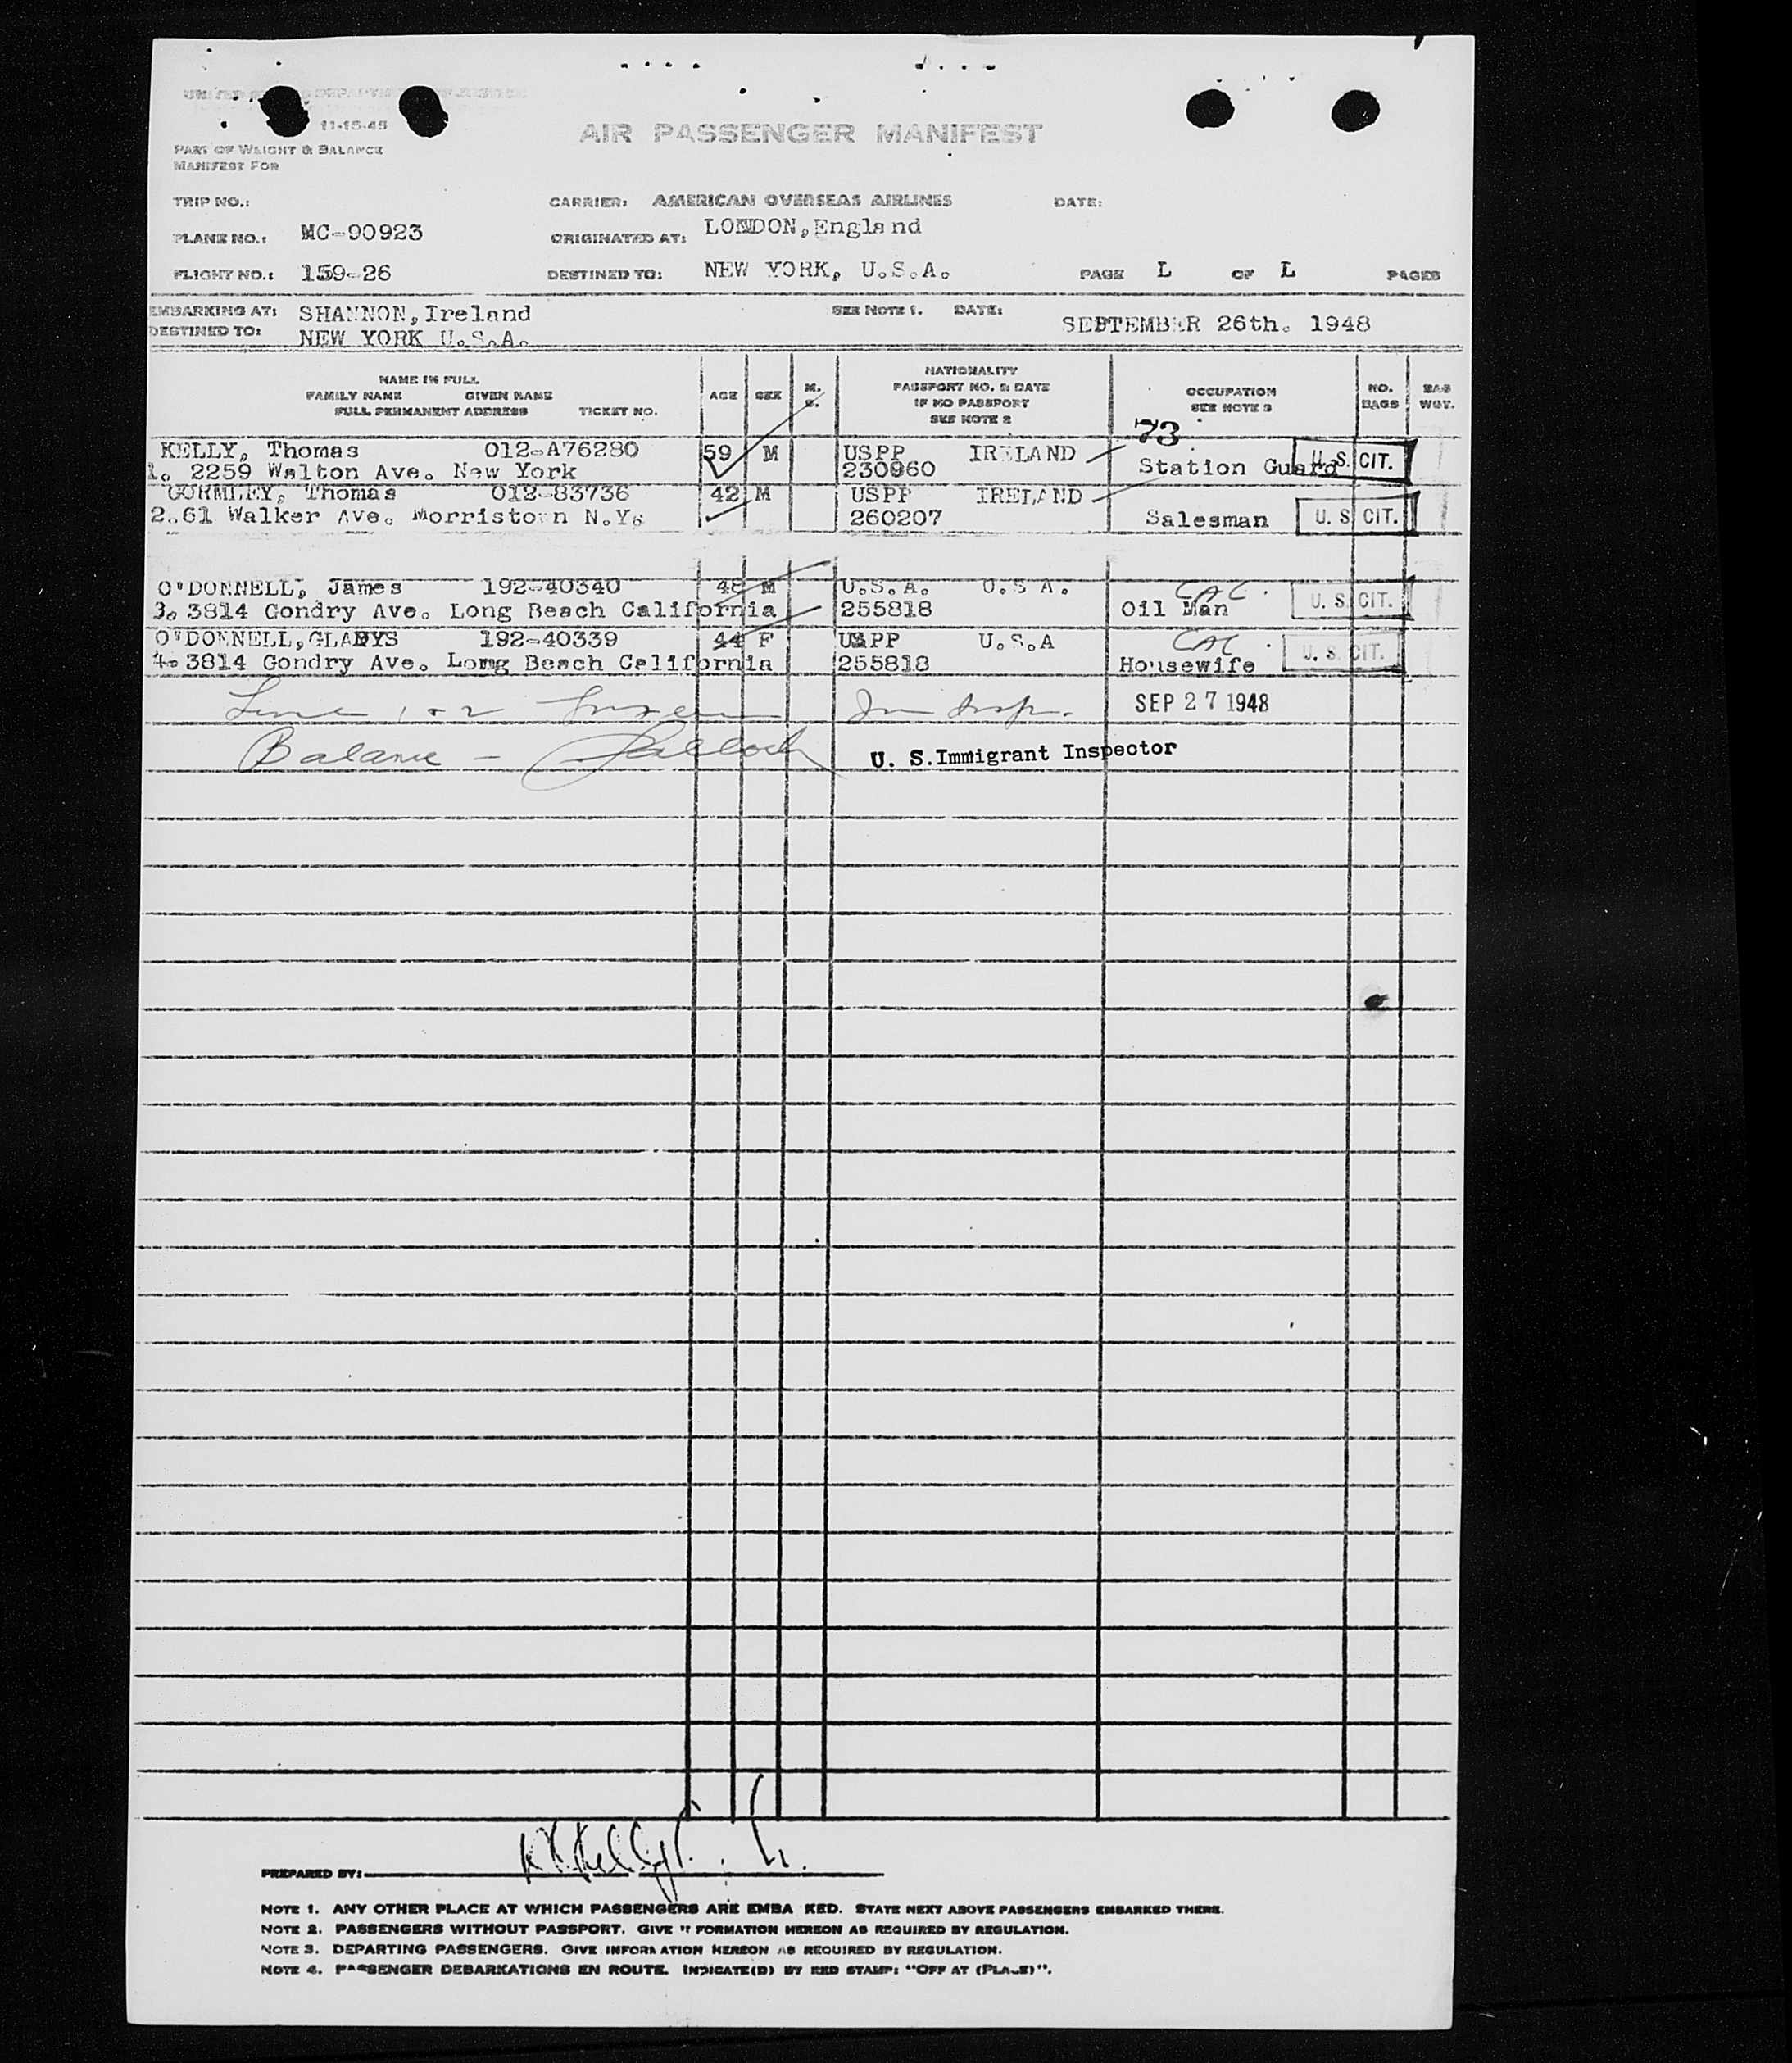 UNITED STATES DEPARTMENT OF JUSTICE
11-15-45
AIR PASSENGER MANIFEST
PART OF WEIGHT & BALANCE
MANIFEST FOR
TRIP NO.: CARRIER: AMERICAN OVERSEAS AIRLINES DATE:
PLANE NO.: MC-90923 ORIGINATED AT: LONDON,England
FLIGHT NO.: 159-26 DESTINED TO: NEW YORK, U.S.A. PAGE L OF L PAGES
EMBARKING AT: SHANNON,Ireland SEE NOTE 1. DATE: SEPTEMBER 26th. 1948
DESTINED TO: NEW YORK U.S.A.
NAME IN FULL
FAMILY NAME GIVEN NAME
FULL PERMANENT ADDRESS TICKET NO. AGE SEX M. S. NATIONALITY
PASSPORT NO. & DATE
IF NO PASSPORT
SEE NOTE 2 OCCUPATION
SEE NOTE 3 NO. BAGS BAG WGT.
73
KELLY, Thomas 012-A76280 59 M USPP IRELAND
1. 2259 Walton Ave. New York 230960 Station Guard U.S. CIT.
GORMLEY, Thomas 012-83736 42 M USPP IRELAND
2.61 Walker Ave. Morristown N.Y. 260207 Salesman U. S. CIT.
O'DONNELL, James 192-40340 48 M U.S.A. U.S.A. CAC.
3. 3814 Gondry Ave. Long Beach California 255818 Oil Man U. S. CIT.
O'DONNELL,GLADYS 192-40339 44 F USPP U.S.A CAC.
4. 3814 Gondry Ave. Long Beach California 255818 Housewife U. S. CIT.
Line 1 + 2 Imm Insp. SEP 27 1948
Balance - U. S.Immigrant Inspector
PREPARED BY:
NOTE 1. ANY OTHER PLACE AT WHICH PASSENGERS ARE EMBA KED. STATE NEXT ABOVE PASSENGERS EMBARKED THERE.
NOTE 2. PASSENGERS WITHOUT PASSPORT. GIVE INFORMATION HEREON AS REQUIRED BY REGULATION.
NOTE 3. DEPARTING PASSENGERS. GIVE INFORMATION HEREON AS REQUIRED BY REGULATION.
NOTE 4. PASSENGER DEBARKATIONS EN ROUTE. INDICATE(D) BY RED STAMP: "OFF AT (PLACE)".